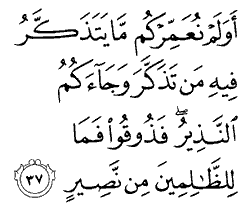 أَوَلَمْ نُعَمِّرْكُم مَّا يَتَذَكَّرُ
فِيهِ مَن تَذَكَّرَ وَجَآءَكُمُ
ٱلنَّذِيرُ ۖ فَذُوقُوا۟ فَمَا
لِلظَّٰلِمِينَ مِن نَّصِيرٍ ٣٧